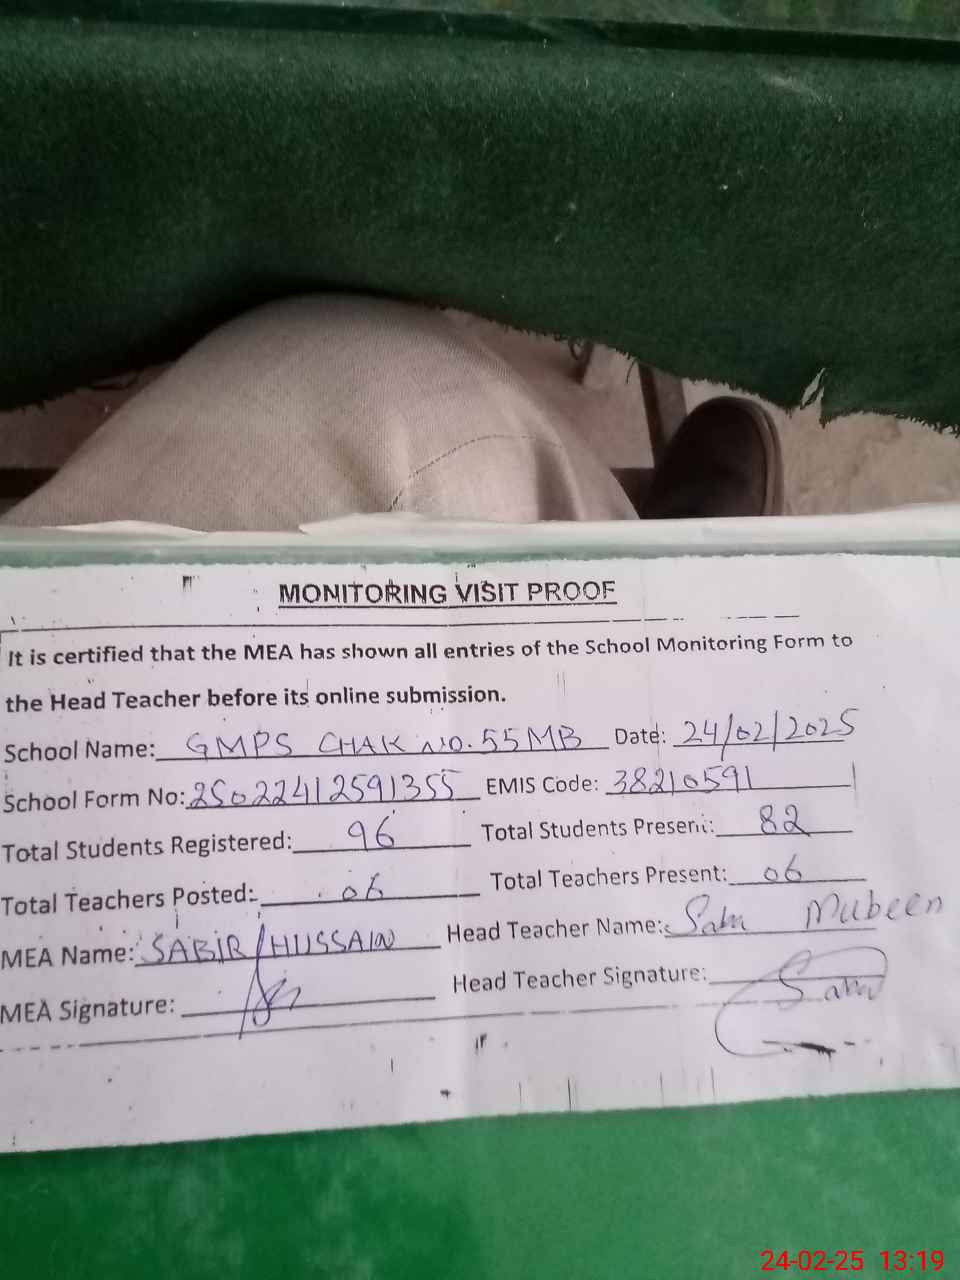 MONITORING VISIT PROOF
It is certified that the MEA has shown all entries of the School Monitoring Form to
the Head Teacher before its online submission.
School Name: GMPS CHAK NO. 55 MB Date: 24/02/2025
School Form No: 250224412591355 EMIS Code: 38210591
Total Students Registered: 96 Total Students Present: 82
Total Teachers Posted: 06 Total Teachers Present: 06
MEA Name: SABIR HUSSAIN Head Teacher Name: Mubeen
MEA Signature: Head Teacher Signature:
24-02-25 13:19